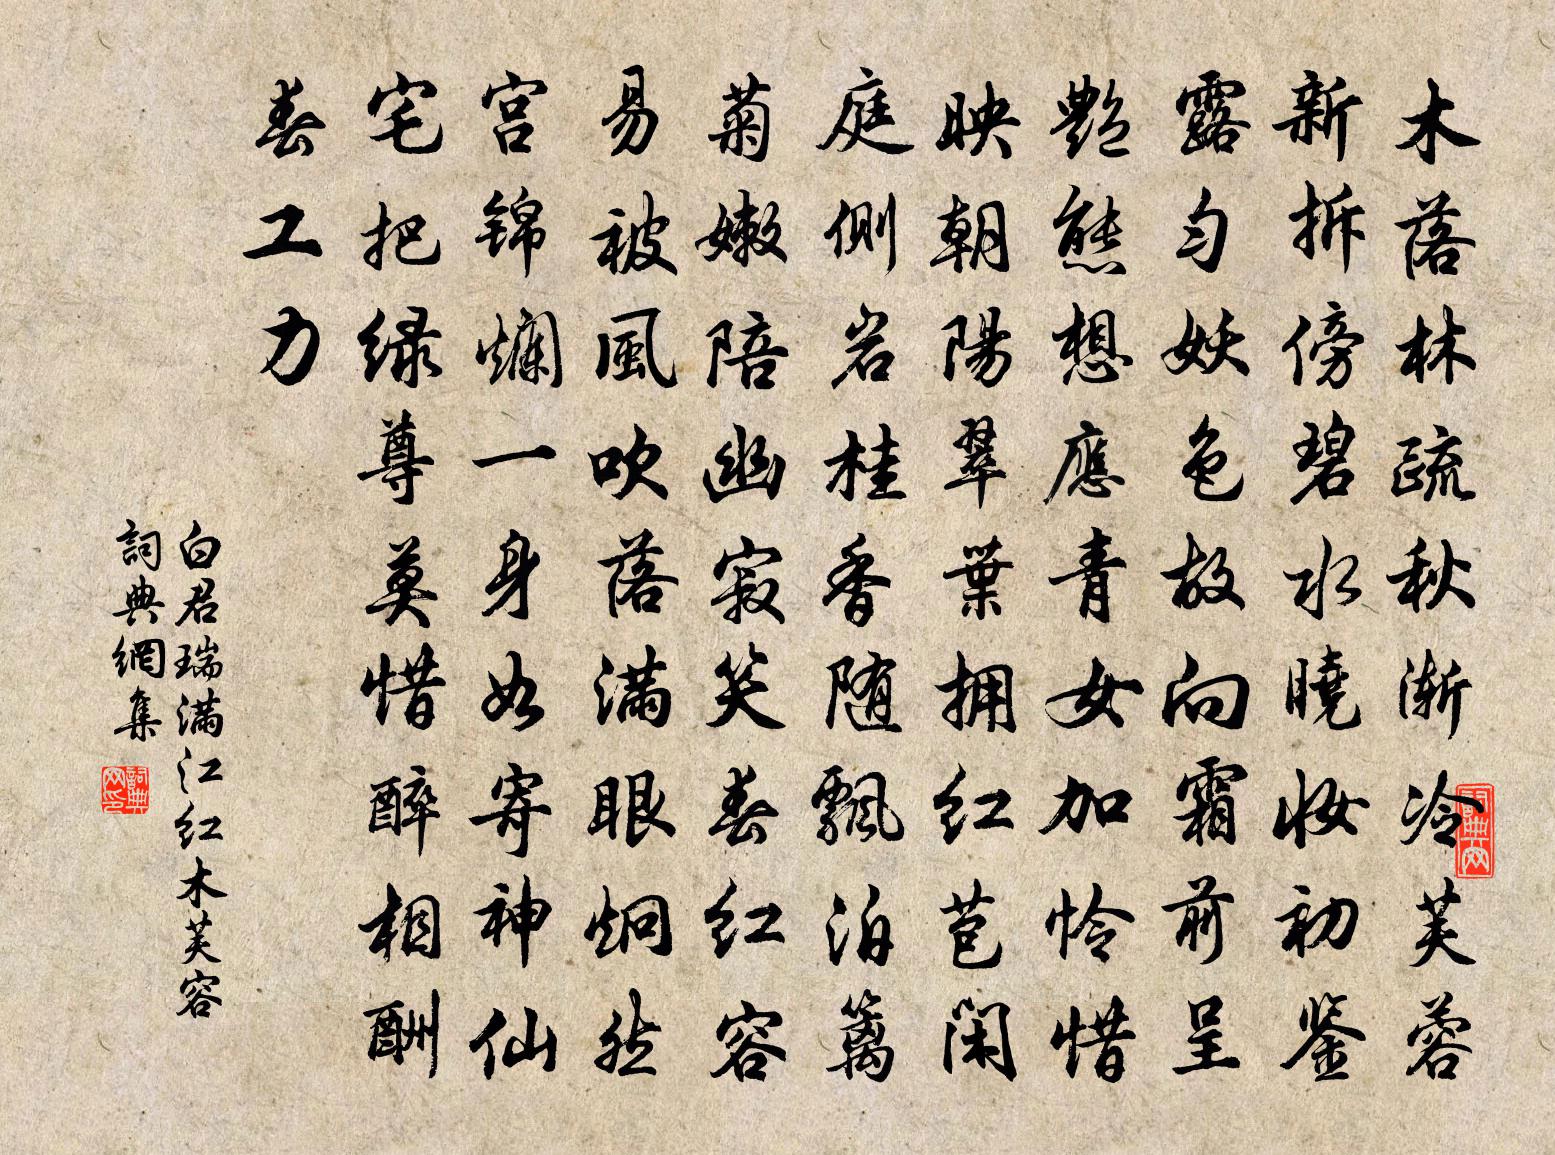 木落林疏秋渐冷芙蓉
新拆傍碧水曉妆初鉴
露匀妖色故向霜前呈
艷態想應青女加怜惜
映朝陽翠葉拥红苞闲
庭側岩桂香随飄泊篱
菊嫩陪幽寂笑春红容
易被風吹落满眼炯然
宫锦爛一身如寄神仙
宅把绿尊莫惜醉相酬
春工力
白君瑞满江红木芙容
詞典網集
詞典网
詞典网印